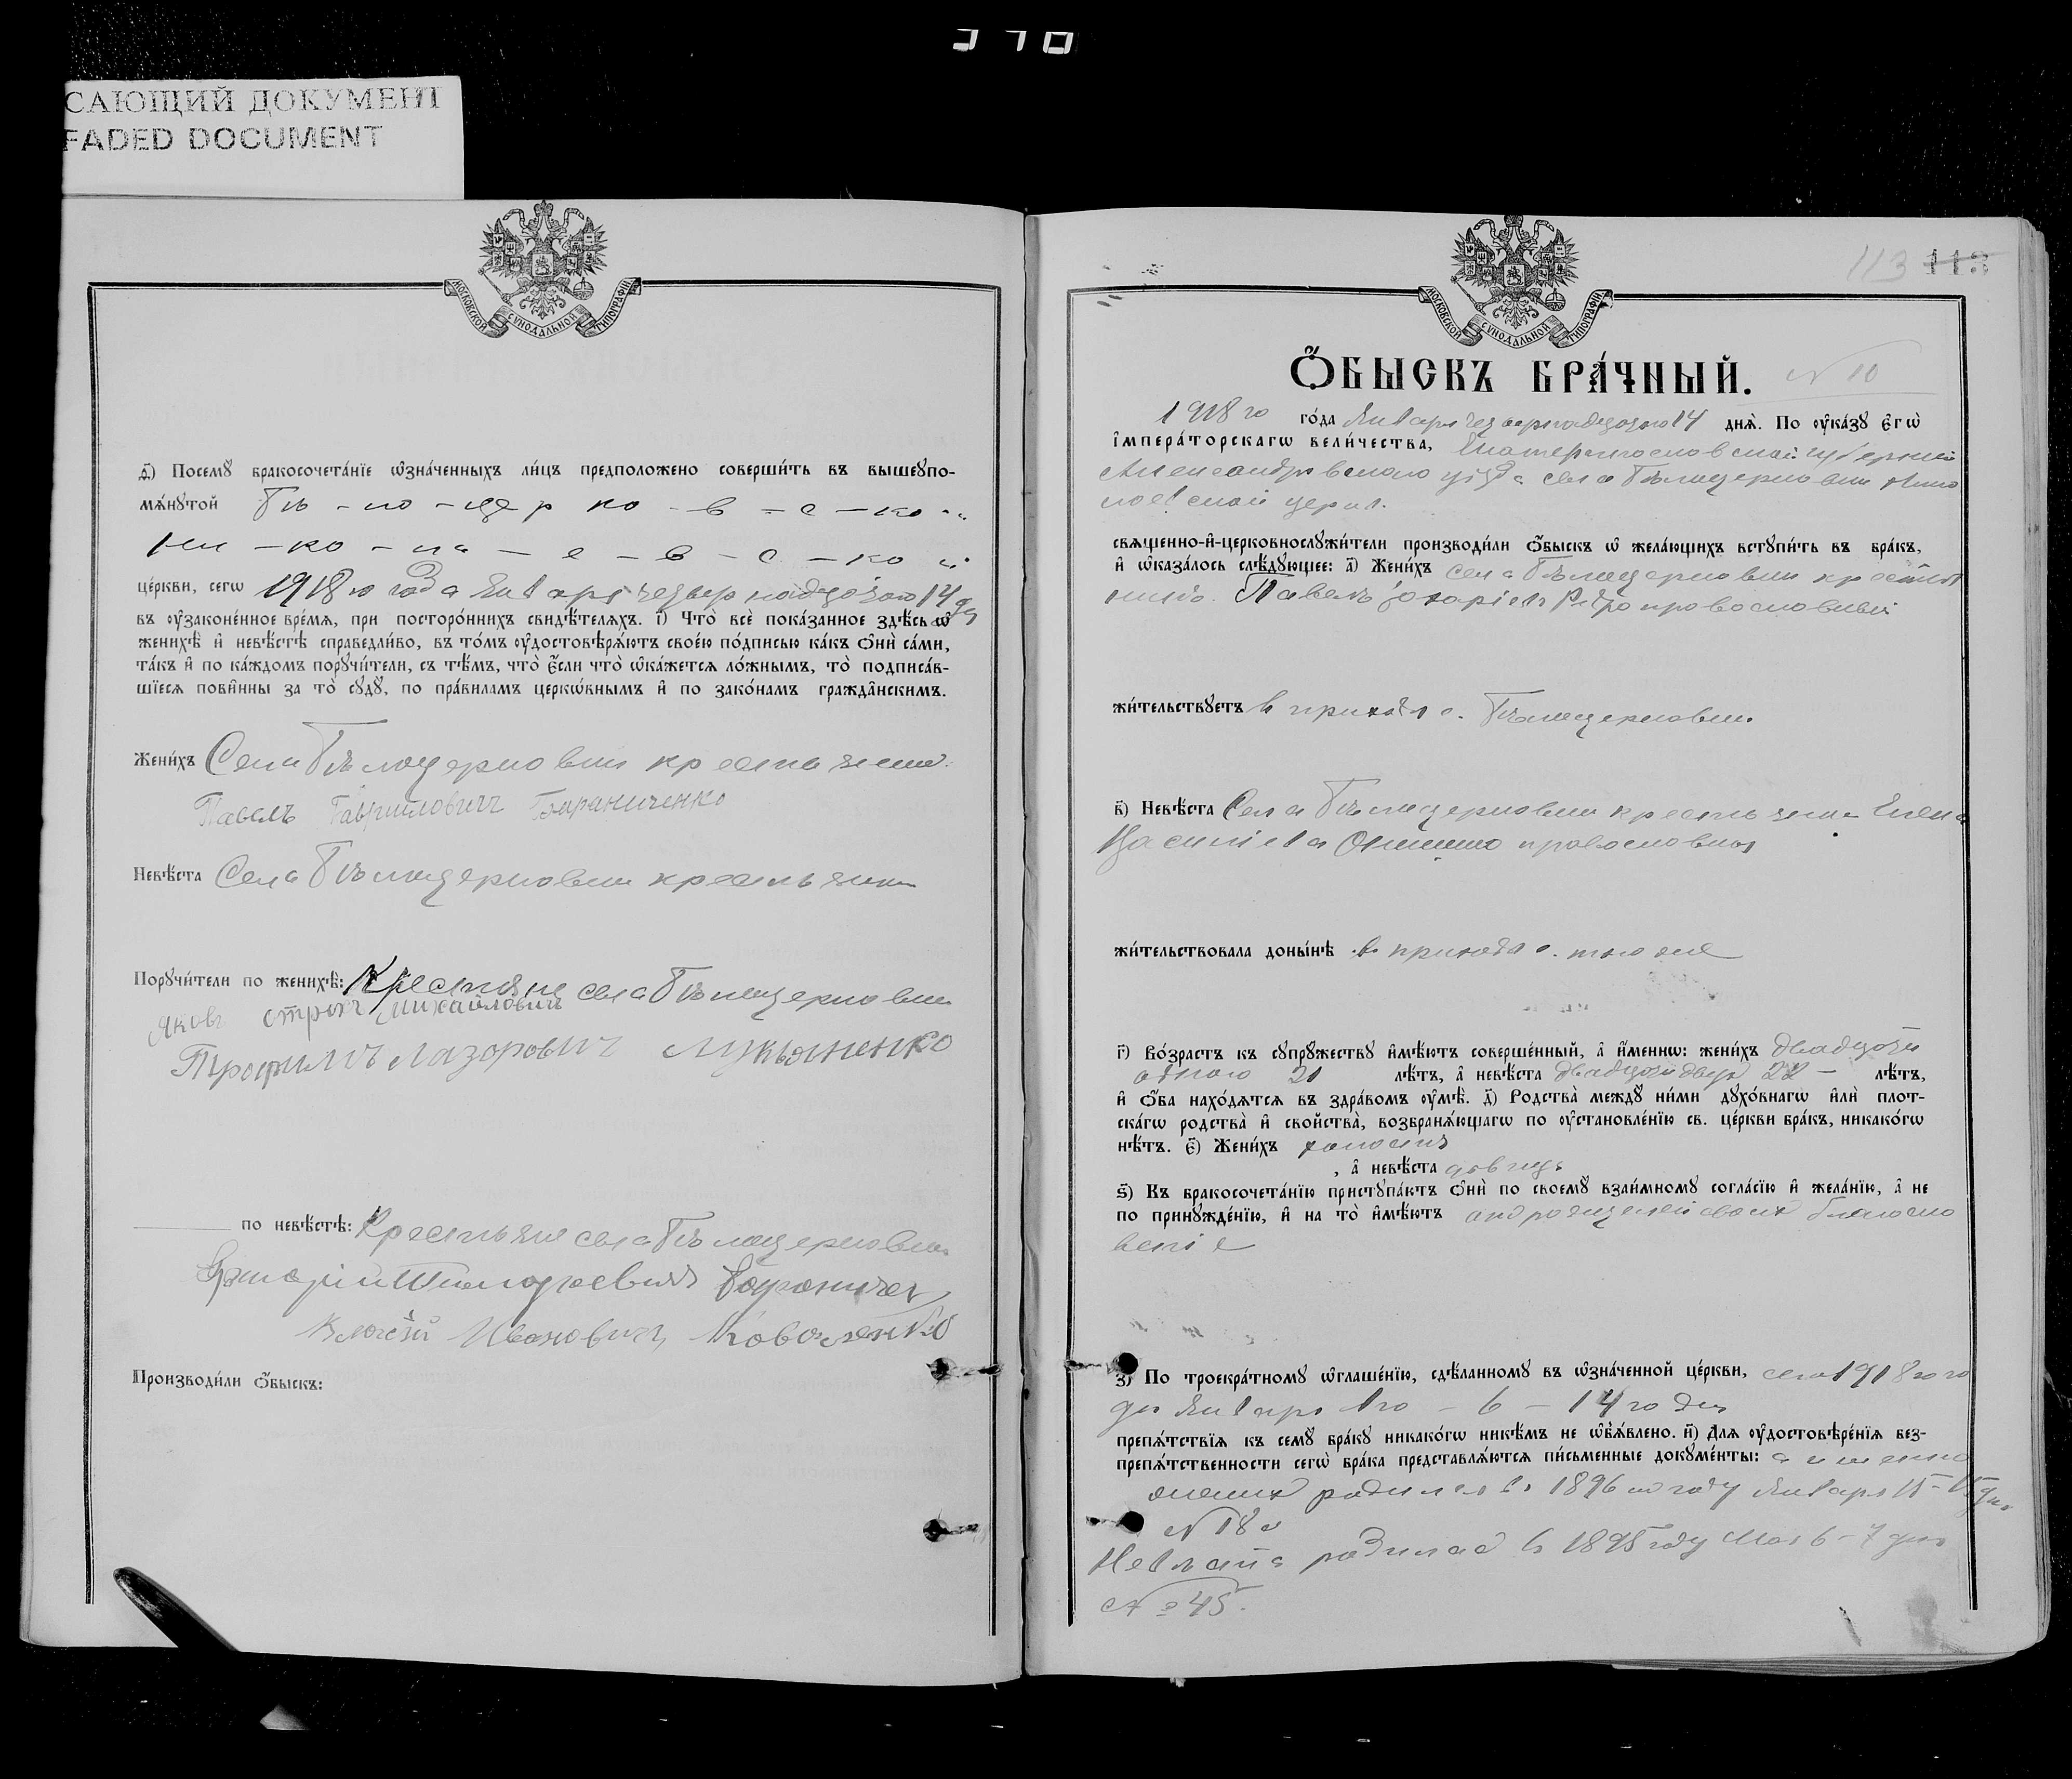 САЮЩИЙ ДОКУМЕНТ
FADED DOCUMENT
МОСКОВСКОЙ СѴНОДАЛЬНОЙ ТИПОГРАФІИ
ѳ҃) Посемꙋ бракосочета́нїе ѡ҆зна́ченныхъ ли́цъ предположено соверши́ть въ вышеꙋпо-
мѧ́нꙋтой Бѣ - ло - це р ко - в - с - ко - й
Ни - ко - ла - е - в - с - ко й
це́ркви, сегѡ 1918 го года Января четыр надцатого 14 дня
въ ᲂу҆законе́нное вре́мѧ, при посторо́ннихъ свидѣ́телѧхъ. і҃) Что̀ всѐ пока́занное здѣ́сь ѡ
женихѣ̀ и҆ невѣ́стѣ справедли́во, въ то́мъ ᲂу҆достовѣрѧ́ютъ свое́ю по́дписью ка́къ ѻ҆нѝ са́ми,
та́къ и҆ по ка́ждомъ порꙋчи́тели, съ тѣ́мъ, что̀ є҆́сли что̀ ѡ҆ка́жетсѧ ло́жнымъ, то̀ подписа́в-
шїесѧ пови́нны за то̀ сꙋдꙋ̀, по пра́виламъ церкѡ́внымъ и҆ по зако́намъ гражда́нскимъ.
Жени́хъ Села Бѣлоцерковки крестьянин
Павелъ Гаврилович Бараниченко
Невѣ́ста Села Бѣлоцерковки крестьянка
Порꙋчи́тели по женихѣ̀: Крестьяне села Бѣлоцерковки
Яковъ Михайловичъ
Трофимъ Лазоровичъ Лукьяненко
по невѣ́стѣ: Крестьяне села Бѣлоцерковки
Иванович Коваленко
Производи́ли ѻ҆́быскъ:
МОСКОВСКОЙ СѴНОДАЛЬНОЙ ТИПОГРАФІИ
113 113
Ѻ҆́БЫСКЪ БРА́ЧНЫЙ. N 10
1918 го го́да Января четырнадцатого 14 днѧ̀. По ᲂу҆ка́зꙋ Є҆гѡ̀
І҆мпера́торскагѡ вели́чества, Екатеринославской губернии
Александровского уѣзда села Бѣлоцерковки Нико
лаевской церкв.
свѧще́нно-и҆-церковнослꙋжи́тели производи́ли ѻ҆́быскъ ѡ҆ жела́ющихъ вступи́ть въ бра́къ,
и҆ ѡ҆каза́лось слѣ́дꙋющее: а҃) Жени́хъ села Бѣлоцерковки крестья
нинъ. Павелъ православный
жи́тельствꙋетъ в приходѣ с. Бѣлоцерковки
в҃) Невѣ́ста Села Бѣлоцерковки крестьянка Елена
Василіева православная
жи́тельствовала доны́нѣ в приходѣ с. того же
г҃) Во́зрастъ къ сꙋпрꙋ́жествꙋ и҆мѣ́ютъ совершéнный, а҆ и҆́меннѡ: жени́хъ двадцати
одного 21 лѣ́тъ, а҆ невѣ́ста двадцати двух 22 - лѣ́тъ,
и҆ ѻ҆́ба нахо́дѧтсѧ въ здра́вомъ ᲂу҆мѣ̀. д҃) Родства̀ междꙋ̀ ни́ми дꙋхо́внагѡ и҆лѝ плот-
ска́гѡ родства̀ и҆ свойства̀, возбранѧ́ющагѡ по ᲂу҆становле́нїю св. це́ркви бра́къ, никако́гѡ
нѣ́тъ. є҃) Жени́хъ холостъ
, а҆ невѣ́ста дѣвица
ѕ҃) Къ бракосочета́нїю приступа́ютъ ѻ҆нѝ по своемꙋ̀ взаи́мномꙋ согла́сїю и҆ жела́нїю, а҆ не
по принꙋжде́нїю, и҆ на то̀ и҆мѣ́ютъ от родителей своих благосло
веніе
з҃) По троекра́тномꙋ ѡ҆глаше́нїю, сдѣ́ланномꙋ въ ѡ҆зна́ченной це́ркви, сего 1918 го го
да Января 1 го - 6 - 14 го дня
препѧ́тствїѧ къ семꙋ̀ бра́кꙋ никако́гѡ никѣ́мъ не ѡ҆б̾ѧ́влено. и҃) Длѧ ᲂу҆достовѣре́нїѧ без-
препѧ́тственности сегѡ̀ бра́ка представлѧ́ютсѧ пи́сьменные докꙋме́нты: а именно
жених родился въ 1896 м году Января 15 - 15 дня
N 18 й
Невѣста родилас в 1895 году Мая 6 - 7 дня
№ 45.